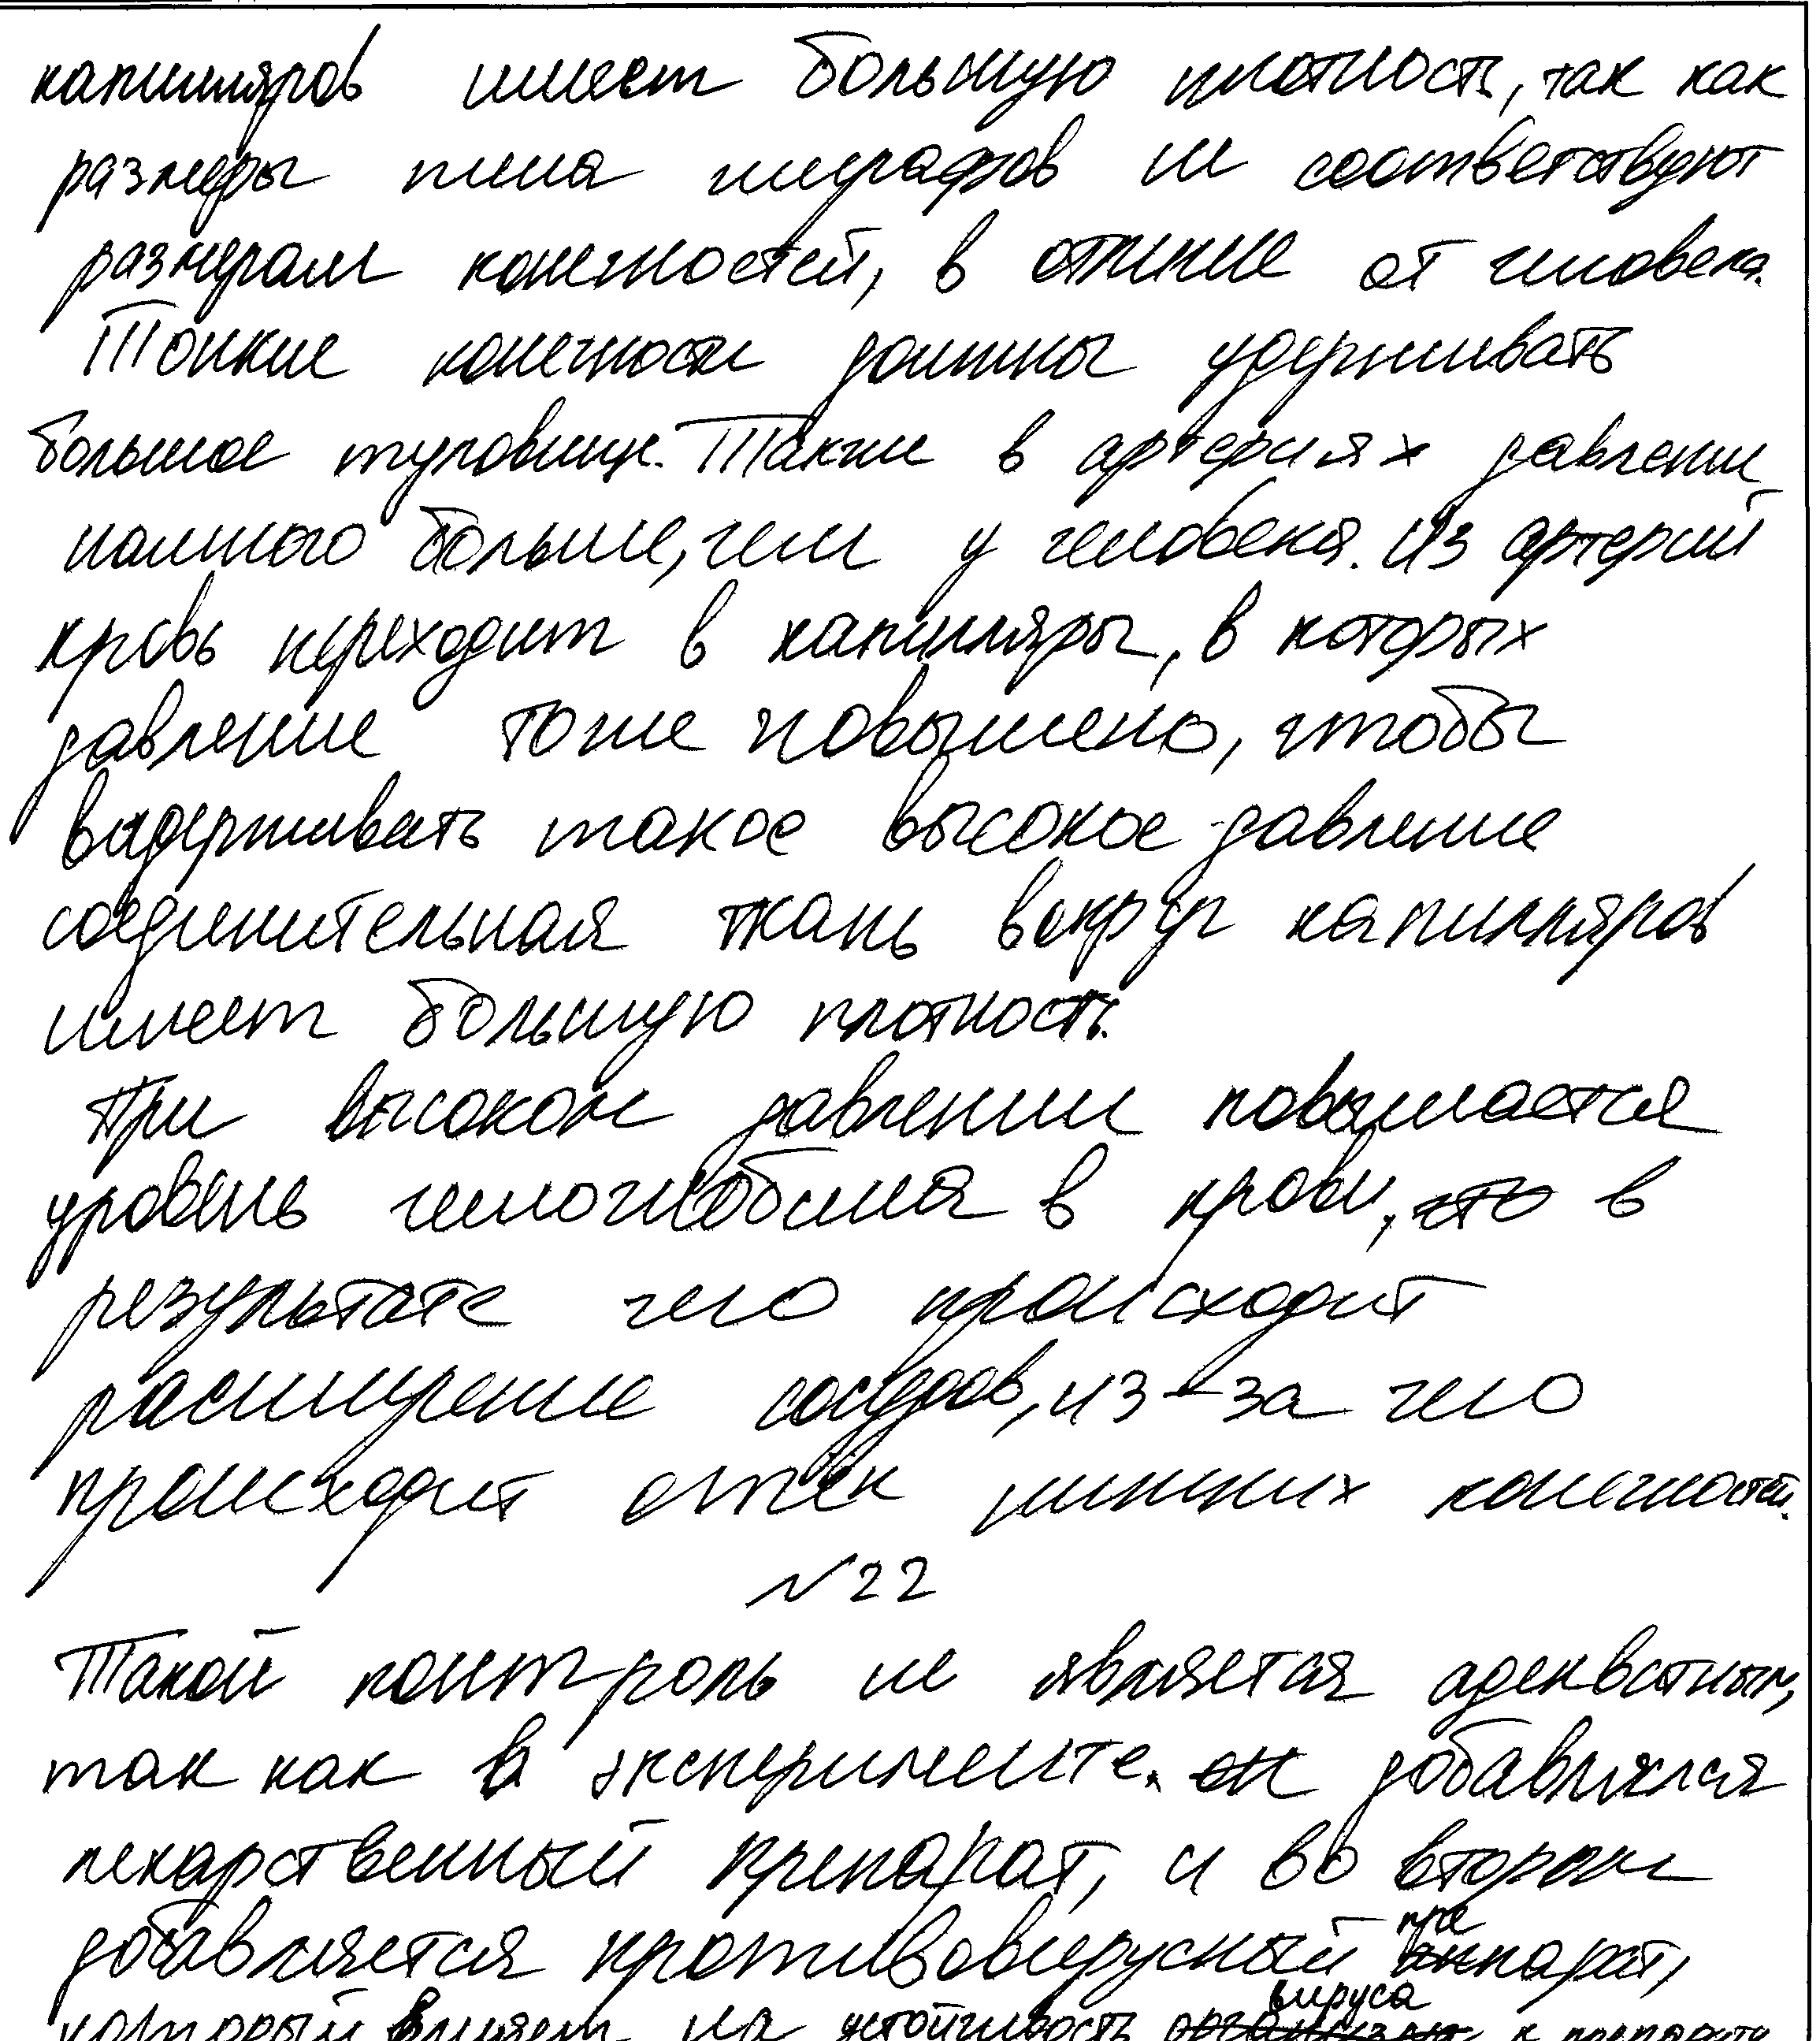 капилляров имеет большую плотность, так как
размеры тела жирафов не соответствуют
размерам конечностей, в отличие от человека.
Тонкие конечности должны удерживать
большое туловище. Также в артериях давление
намного больше, чем у человека. Из артерий
кровь переходит в капилляры, в которых
давление тоже повышено, чтобы
выдерживать такое высокое давление
соединительная ткань вокруг капилляров
имеет большую плотность.
При высоком давлении повышается
уровень гемоглобина в крови, что в
результате чего происходит
расширение сосудов, из-за чего
происходит отёк нижних конечностей.
№22
Такой контроль не является адекватным,
так как в эксперименте. он добавлялся
лекарственный препарат, и во втором
добавляется противовирусный препарат,
который влияет на устойчивость вируса к препарату